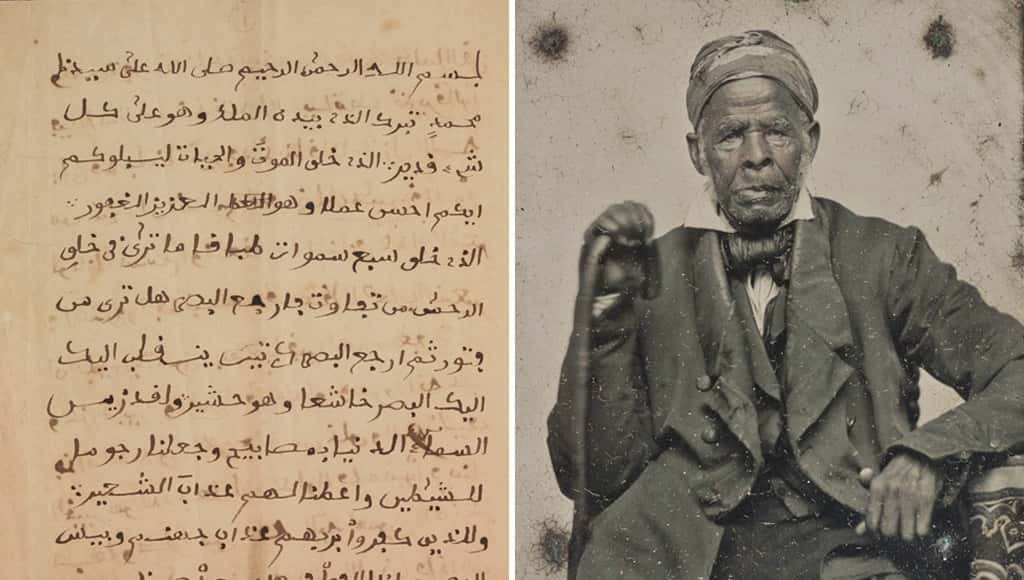 بسم الله الرحمن الرحيم صلى الله على سيدنا
محمد تبرك الذي بيده الملك وهو على كل
شيء قدير الذي خلق الموت والحيات ليبلوكم
ايكم احسن عملا وهو العزيز الغفور
الذي خلق سبع سموات طباقا ما ترى في خلق
الرحمن من تفاوت فارجع البصر هل ترى من
فتور ثم ارجع البصر ينقلب اليك
اليك البصر خاشعا وهو حشير ولقد زين
السماء الدنيا بمصابيح وجعلنا رجوما
للشيطين واعطنا لهم عذاب الشعير
وللذين كفروا بربهم عذاب جهنم وبيس